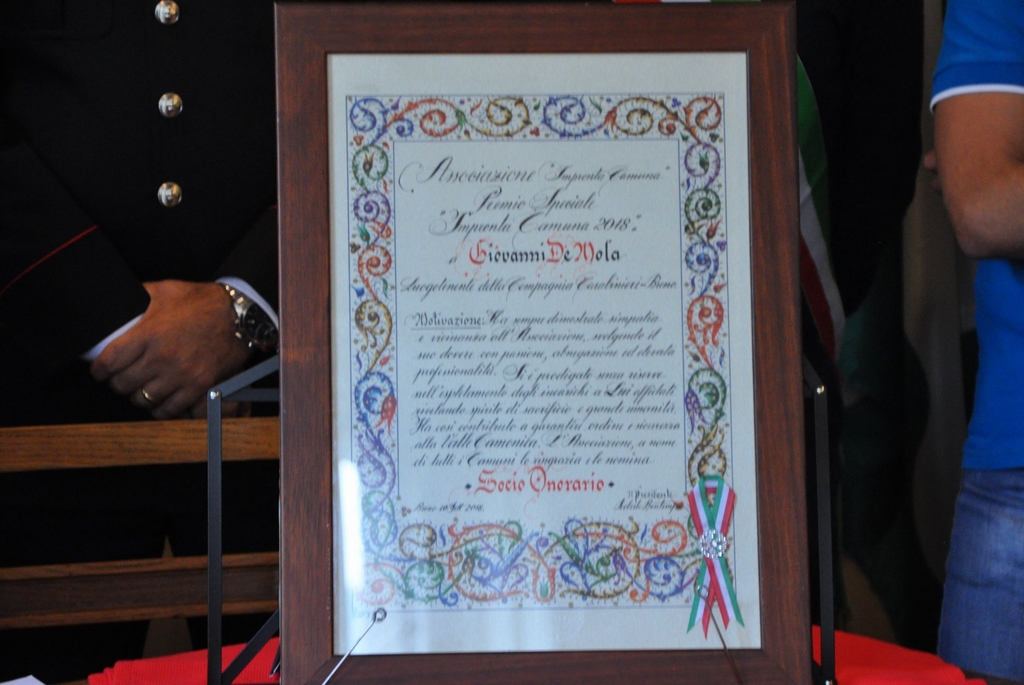 Associazione "Impronta Camuna"
Premio Speciale
"Impronta Camuna 2018"
a Giovanni De Mola
Luogotenente della Compagnia Carabinieri-Breno
Motivazione: Ha sempre dimostrato simpatia
e vicinanza all'Associazione, svolgendo il
suo dovere con passione, abnegazione ed elevata
professionalità. Si è prodigato senza riserve
nell'espletamento degli incarichi a Lui affidati,
rivelando spirito di sacrificio e grande umanità.
Ha così contribuito a garantire ordine e sicurezza
alla Valle Camonica. L'Associazione, a nome
di tutti i Camuni lo ringrazia e lo nomina
Socio Onorario
Il Presidente
Breno 2018.